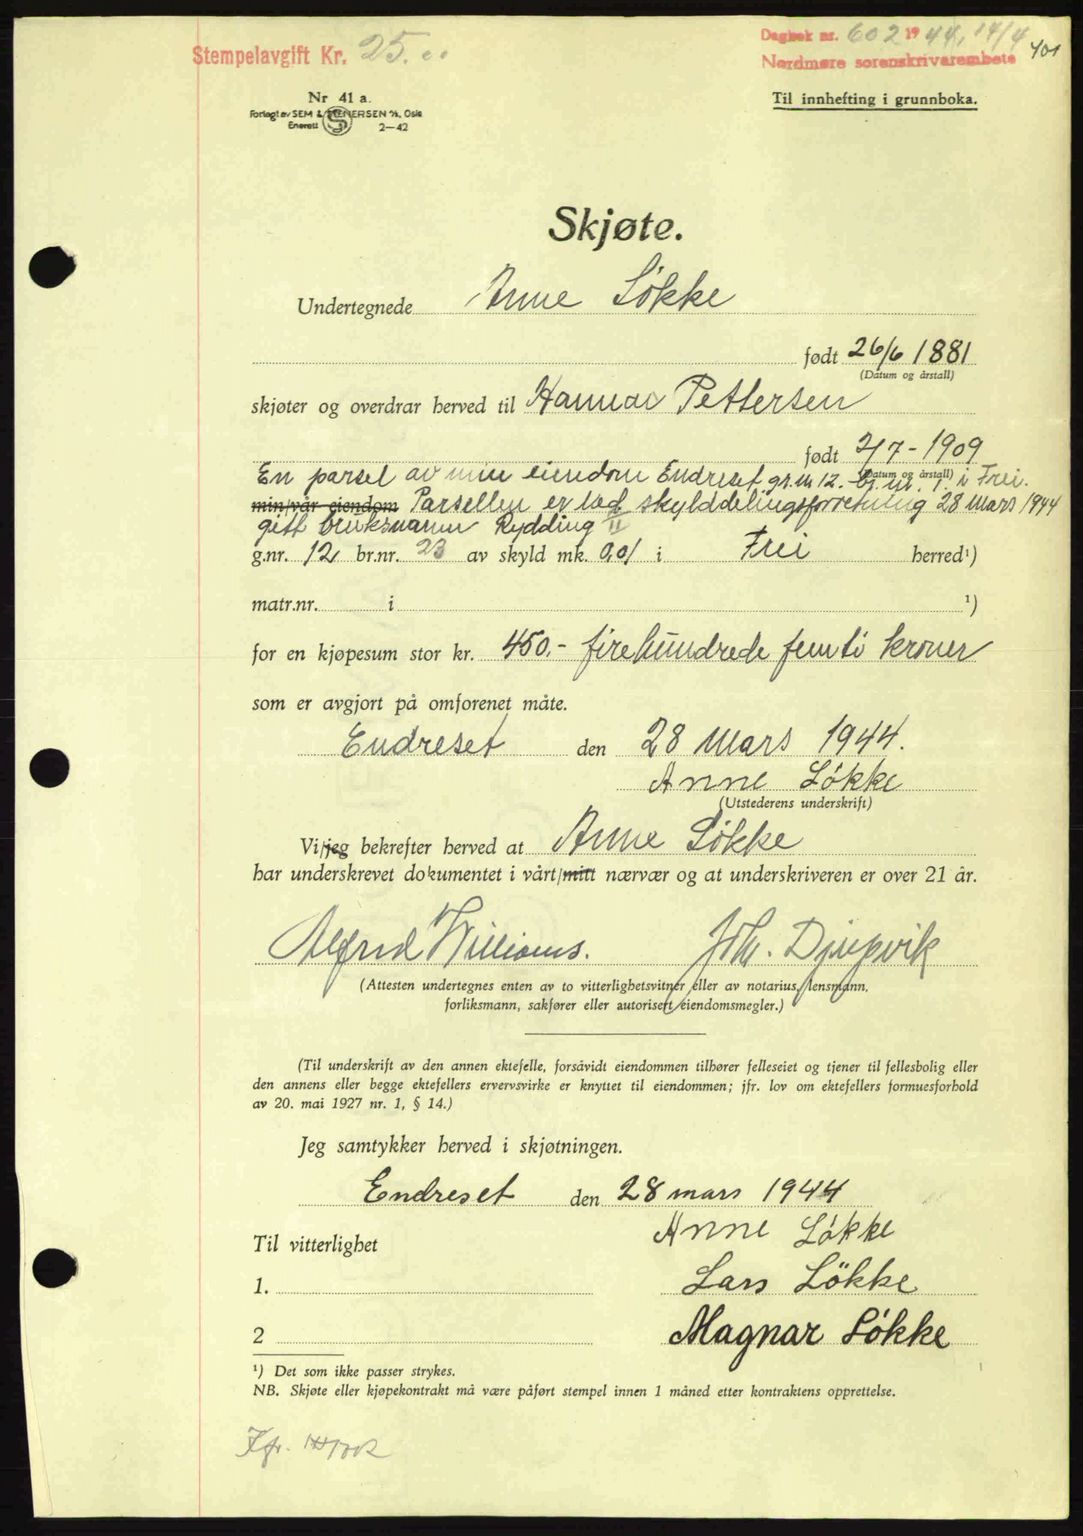 Stempelavgift Kr. 25.00
Dagbok nr. 602 1944, 14/4
Nordmøre sorenskrivarembete
401
Nr 41 a.
Forlagt av SEM & STENERSEN A/S, Oslo
Enerett 2-42
Til innhefting i grunnboka.
Skjøte.
Undertegnede Anne Løkke
født 26/6 1881
(Datum og årstall)
skjøter og overdrar herved til Hannar Pettersen
født 2/7-1909
(Datum og årstall)
En parsel av min eiendom Endreset gr.nr 12. br.nr. 1. i Frei.
min/vår eiendom Parsellen er ved skylddelingsforretning 28 mars 1944
gitt bruksnavn Rydding II
g.nr. 12 br.nr. 23 av skyld mk. 0,01 i Frei herred¹)
matr.nr. i ¹)
for en kjøpesum stor kr. 450.- firehundrede femti kroner
som er avgjort på omforenet måte.
Endreset den 28 mars 1944.
Anne Løkke
(Utstederens underskrift)
Vi/jeg bekrefter herved at Anne Løkke
har underskrevet dokumentet i vårt/mitt nærvær og at underskriveren er over 21 år.
Alfred Williams. Joh. Djupvik
(Attesten undertegnes enten av to vitterlighetsvitner eller av notarius, lensmann,
forliksmann, sakfører eller autorisert eiendomsmegler.)
(Til underskrift av den annen ektefelle, forsåvidt eiendommen tilhører felleseiet og tjener til fellesbolig eller
den annens eller begge ektefellers ervervsvirke er knyttet til eiendommen; jfr. lov om ektefellers formuesforhold
av 20. mai 1927 nr. 1, § 14.)
Jeg samtykker herved i skjøtningen.
Endreset den 28 mars 1944
Anne Løkke
Til vitterlighet
1. Lars Løkke
2 Magnar Løkke
¹) Det som ikke passer strykes.
NB. Skjøte eller kjøpekontrakt må være påført stempel innen 1 måned etter kontraktens opprettelse.